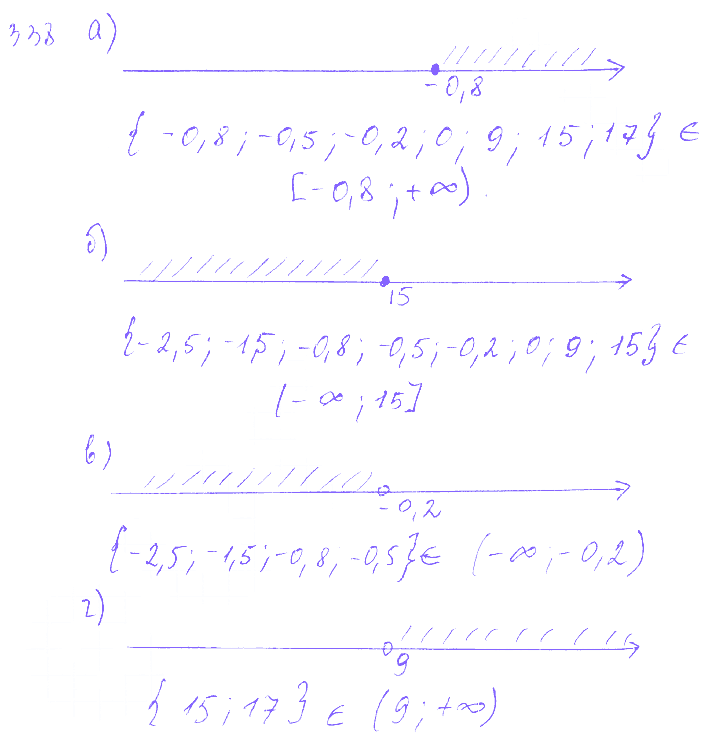 338 а)
-0,8
{ -0,8 ; -0,5 ; -0,2 ; 0 ; 9 ; 15 ; 17} ∈
[-0,8 ; +∞).
б)
15
{-2,5 ; -1,5 ; -0,8 ; -0,5 ; -0,2 ; 0 ; 9 ; 15} ∈
(-∞ ; 15]
в)
-0,2
{-2,5 ; -1,5 ; -0,8 ; -0,5} ∈ (-∞ ; -0,2)
г)
9
{ 15 ; 17 } ∈ (9 ; +∞)